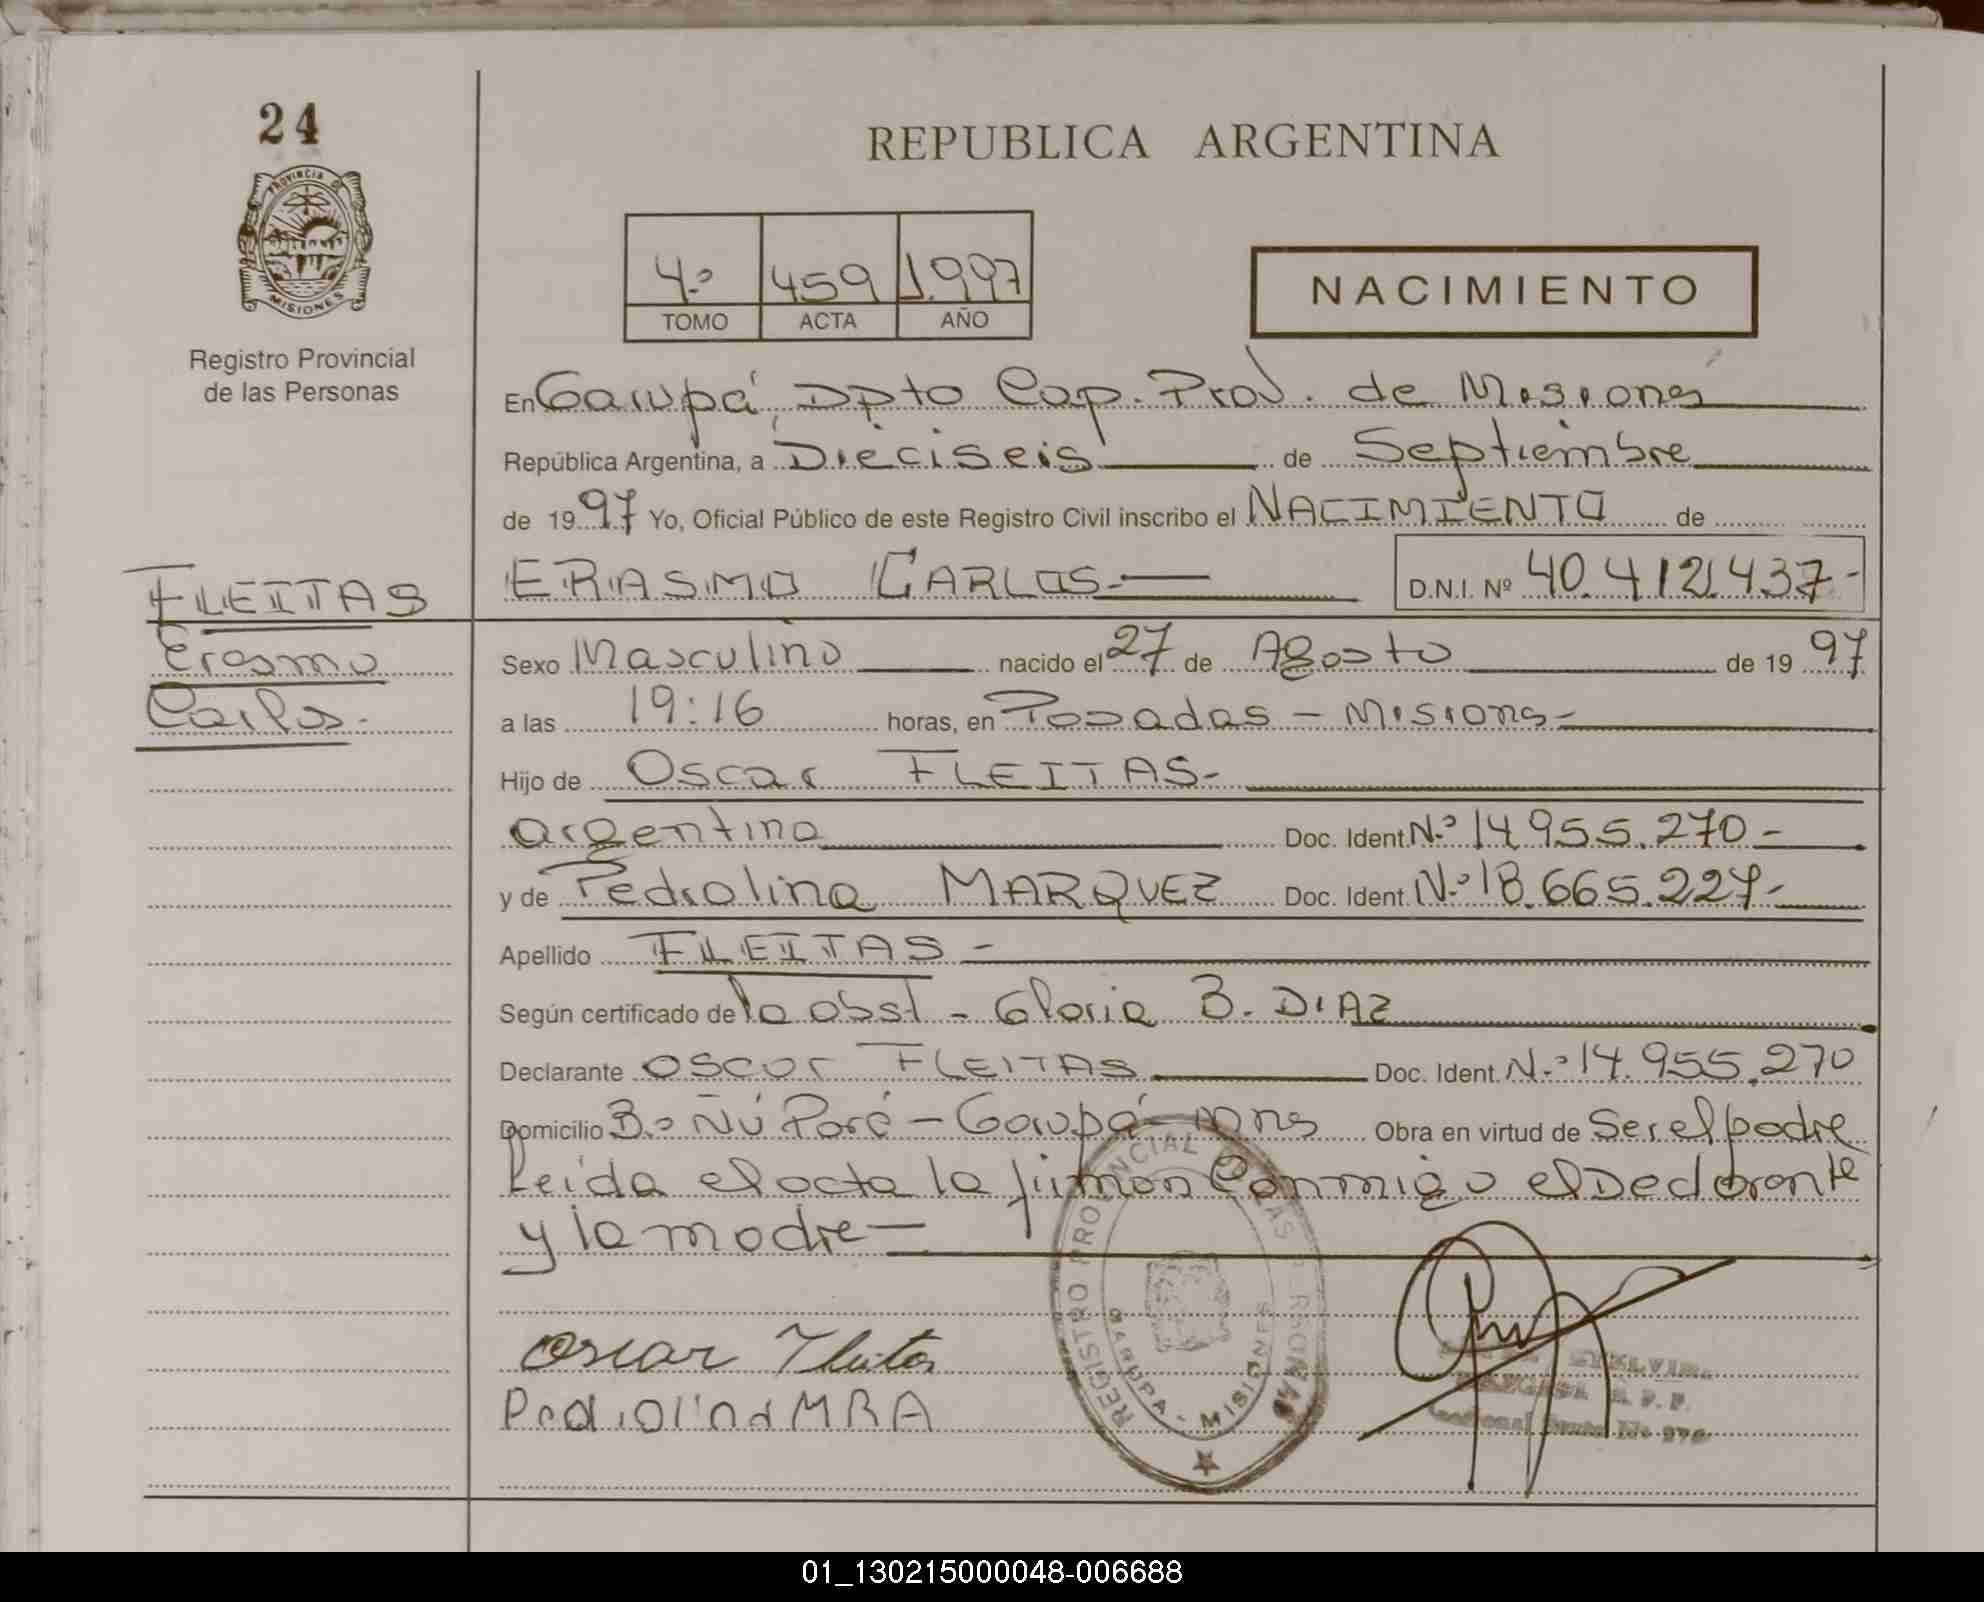 24
PROVINCIA DE
MISIONES
Registro Provincial
de las Personas
REPUBLICA ARGENTINA
4.º 459 1.997
TOMO ACTA AÑO
NACIMIENTO
En Garupá, Dpto Cap. Prov. de Misiones
República Argentina, a Dieciseis de Septiembre
de 1997 Yo, Oficial Público de este Registro Civil inscribo el NACIMIENTO de
ERASMO CARLOS.- D.N.I. Nº 40.412.437-
FLEITAS
Erasmo
Carlos.-
Sexo Masculino nacido el 27 de Agosto de 1997
a las 19:16 horas, en Posadas - Misiones-
Hijo de Oscar FLEITAS-
argentino Doc. Ident. N.º 14.955.270-
y de Pedrolina MARQUEZ Doc. Ident. N.º 18.665.227-
Apellido FLEITAS-
Según certificado de la obst - Gloria B. DIAZ
Declarante Oscar FLEITAS Doc. Ident. N.º 14.955.270
Domicilio B.º Ñú Porá - Garupá - Mns Obra en virtud de Ser el padre
Leida el acta la firman Conmigo el Declarante
y la madre-
REGISTRO PROVINCIAL DE LAS PERSONAS
GARUPA - MISIONES
Oscar Fleitas